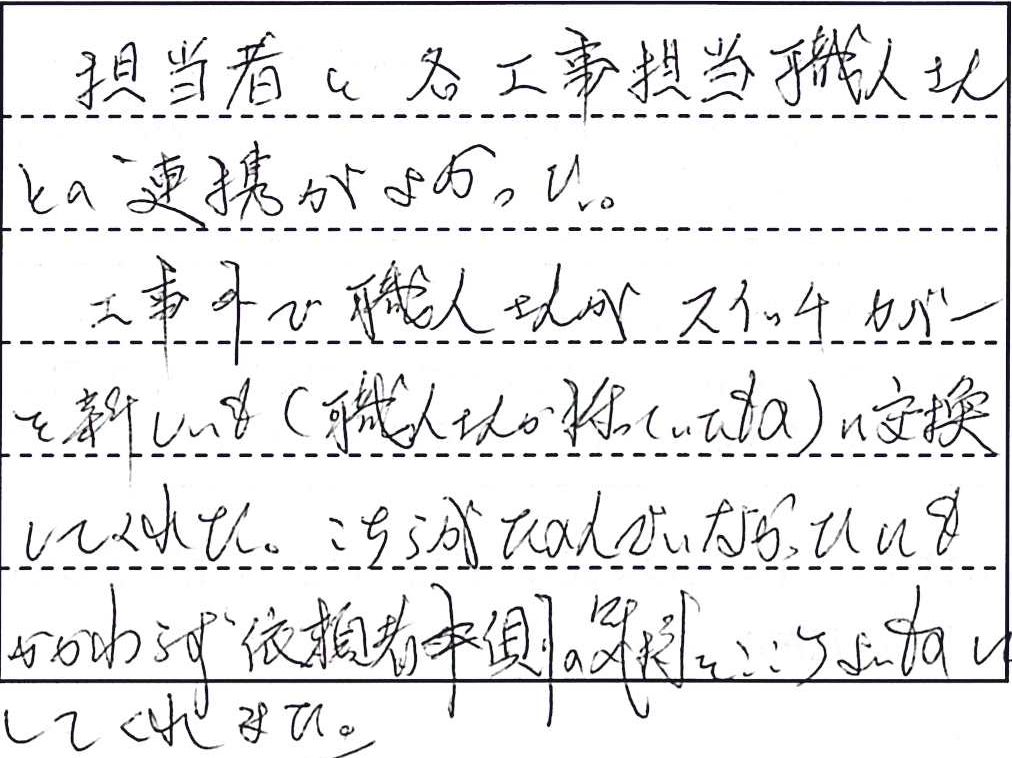 担当者と各工事担当職人さん
との連携がよかった。
工事外で職人さんがスイッチカバー
を新しいも(職人さんが持っていたもの)に交換
してくれた。こちらがたのんでいなかったにも
かかわらず依頼者側の 気持をここちよいものに
してくれました。